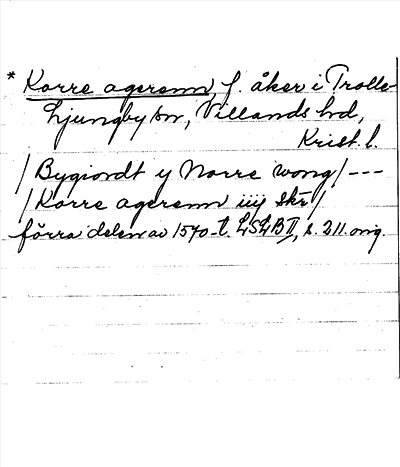 * Korre agerenn, f. åker i Trolle-
Ljungby sn, Villands hd,
Krist. l.
/ Bygiordt y Norre wong / ---
/ Korre agerenn iiij skr /
förra delen av 1570-t. LSLB II, s. 211. orig.